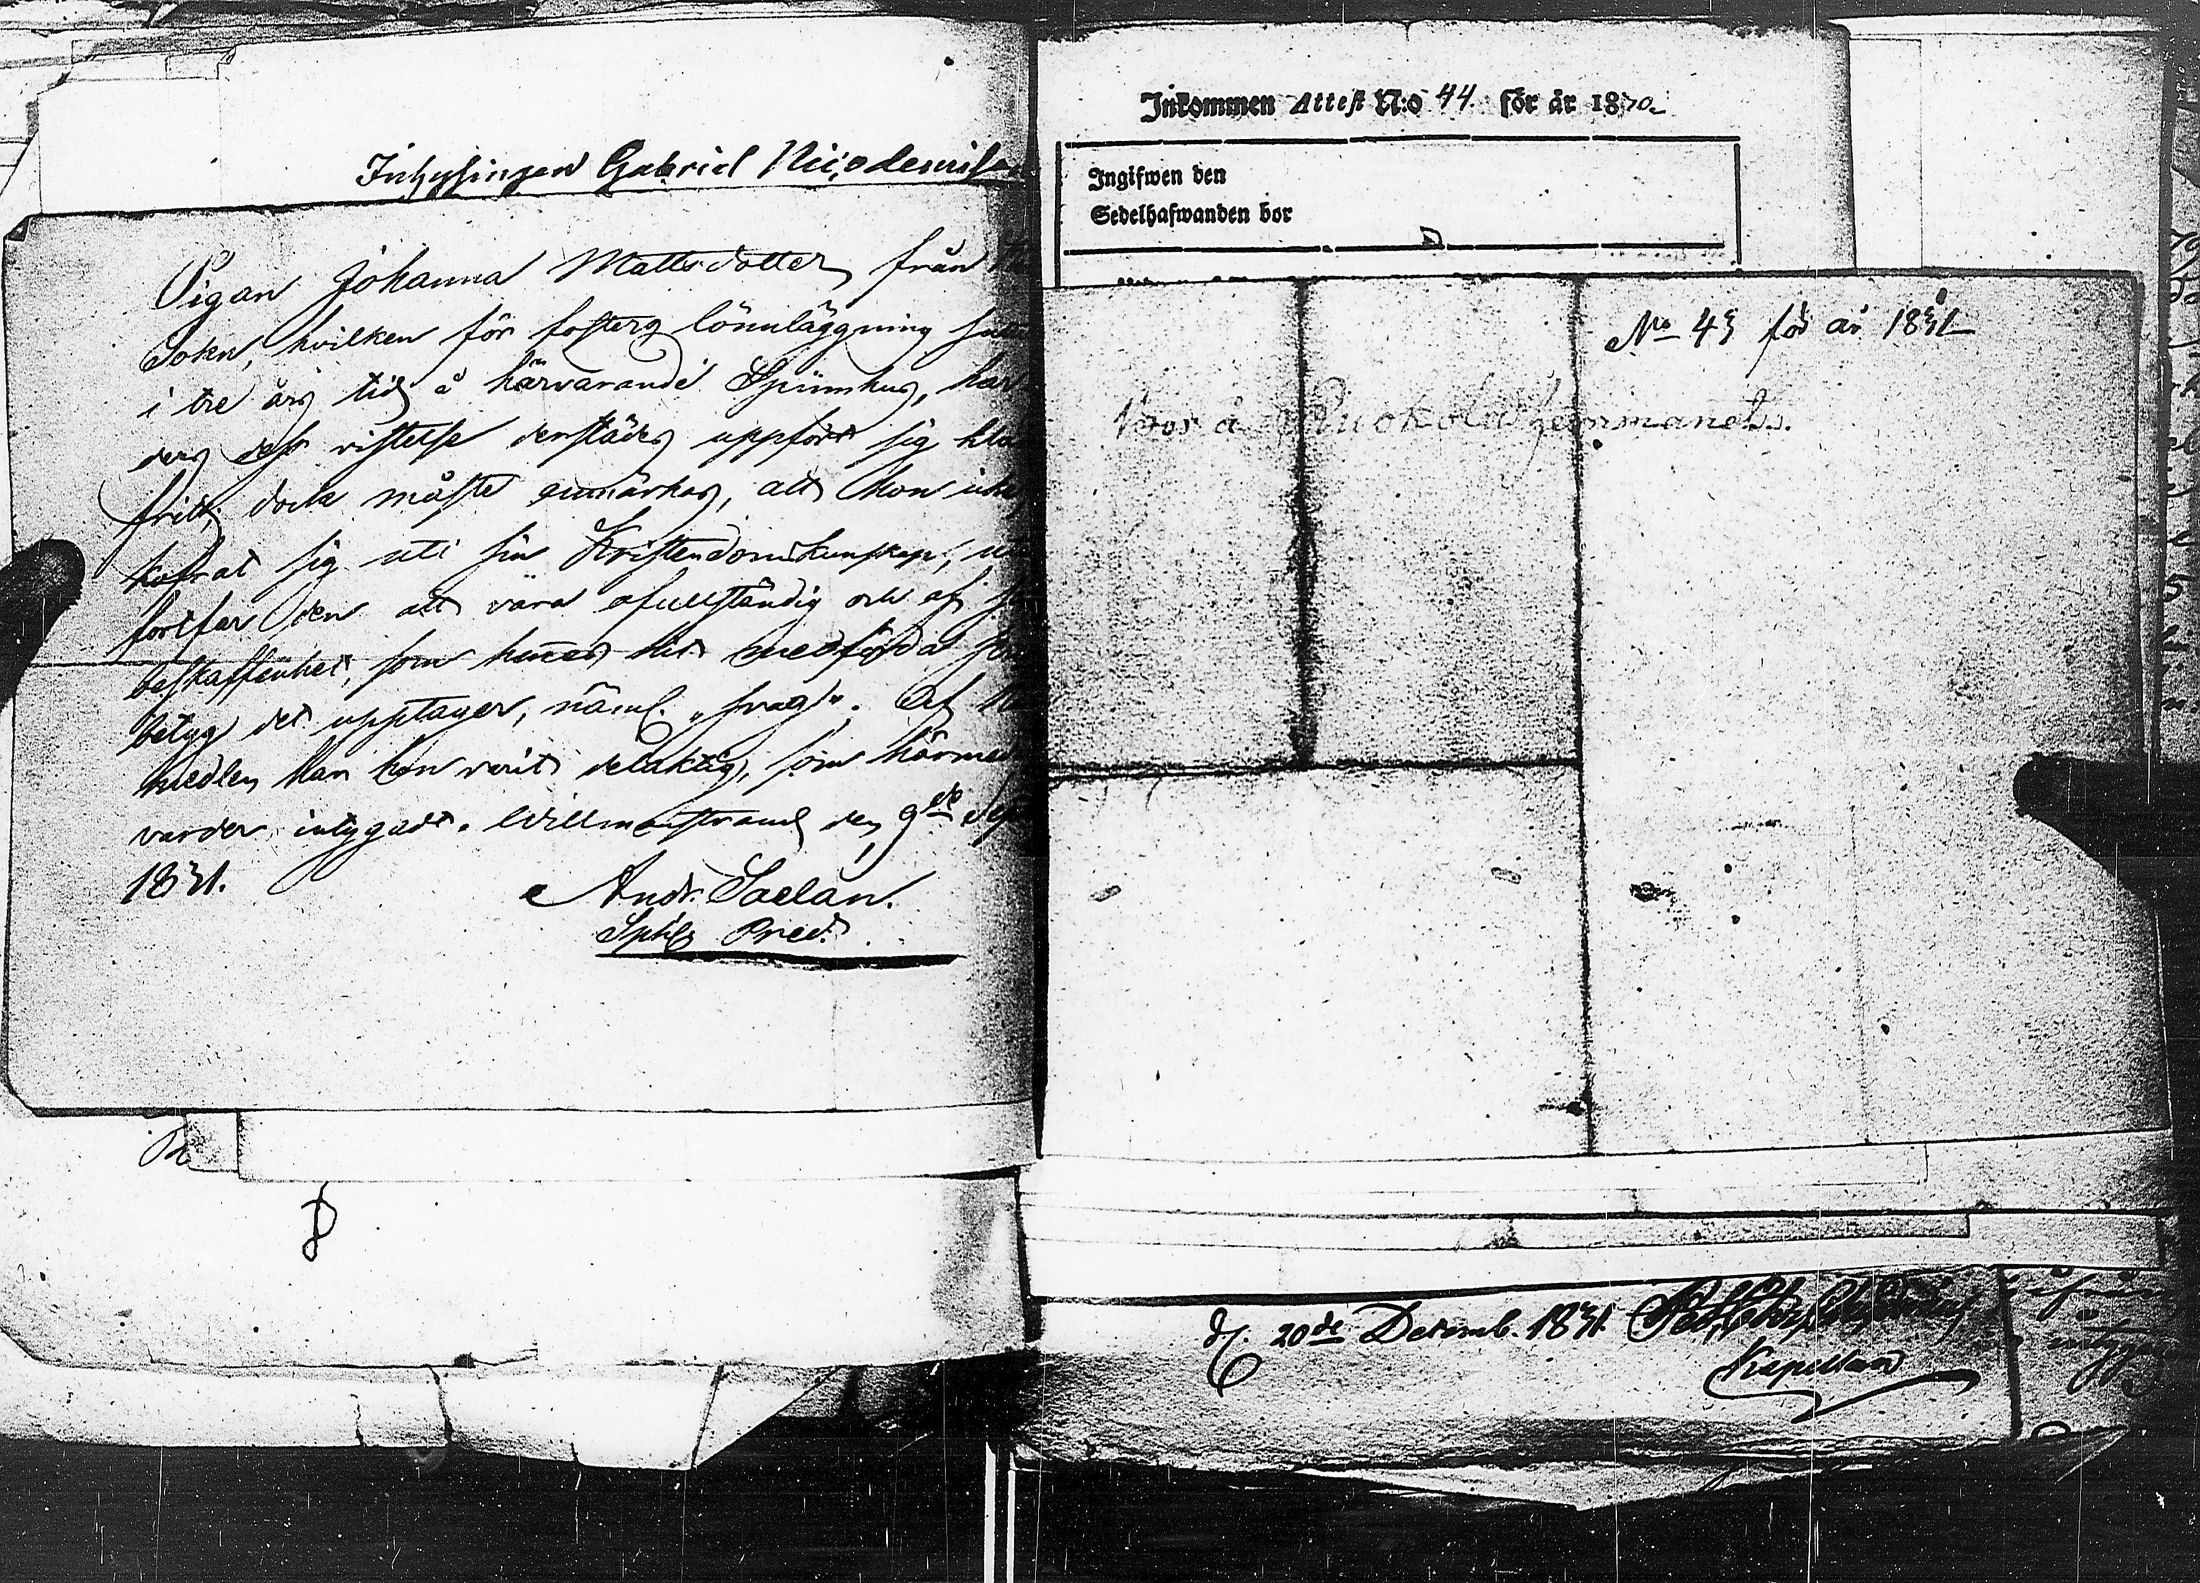 Inhysingen Gabriel Nicodemiss
Pigan Johanna Mattsdotter från
Sokn, hvilken för fosters lönnläggning
i tre års tid å härvarande Spinnhus, har
ders dess vistelse derstädes uppfört sig kla
fritt; dock måste anmärkas, att hon icke
kofrat sig uti sin Kristendomskunskap;
fortfar den att vara ofullständig och af
beskaffenhet, som hennes hit medförda
betyg det upptager, näml. „svag". Af
medlen har hon varit delaktig, som härmed
varder intygadt. Willmanstrand den 9de Sept
1871.
Andr. Saelan.
Sphs Pred.
Inkommen Attest N:o 44. för år 1870.
Ingifwen den
Sedelhafwanden bor
No 43 för år 1871
Bor å Ruokola hemmanet.
d. 20de Decemb. 1871.
Kapellan